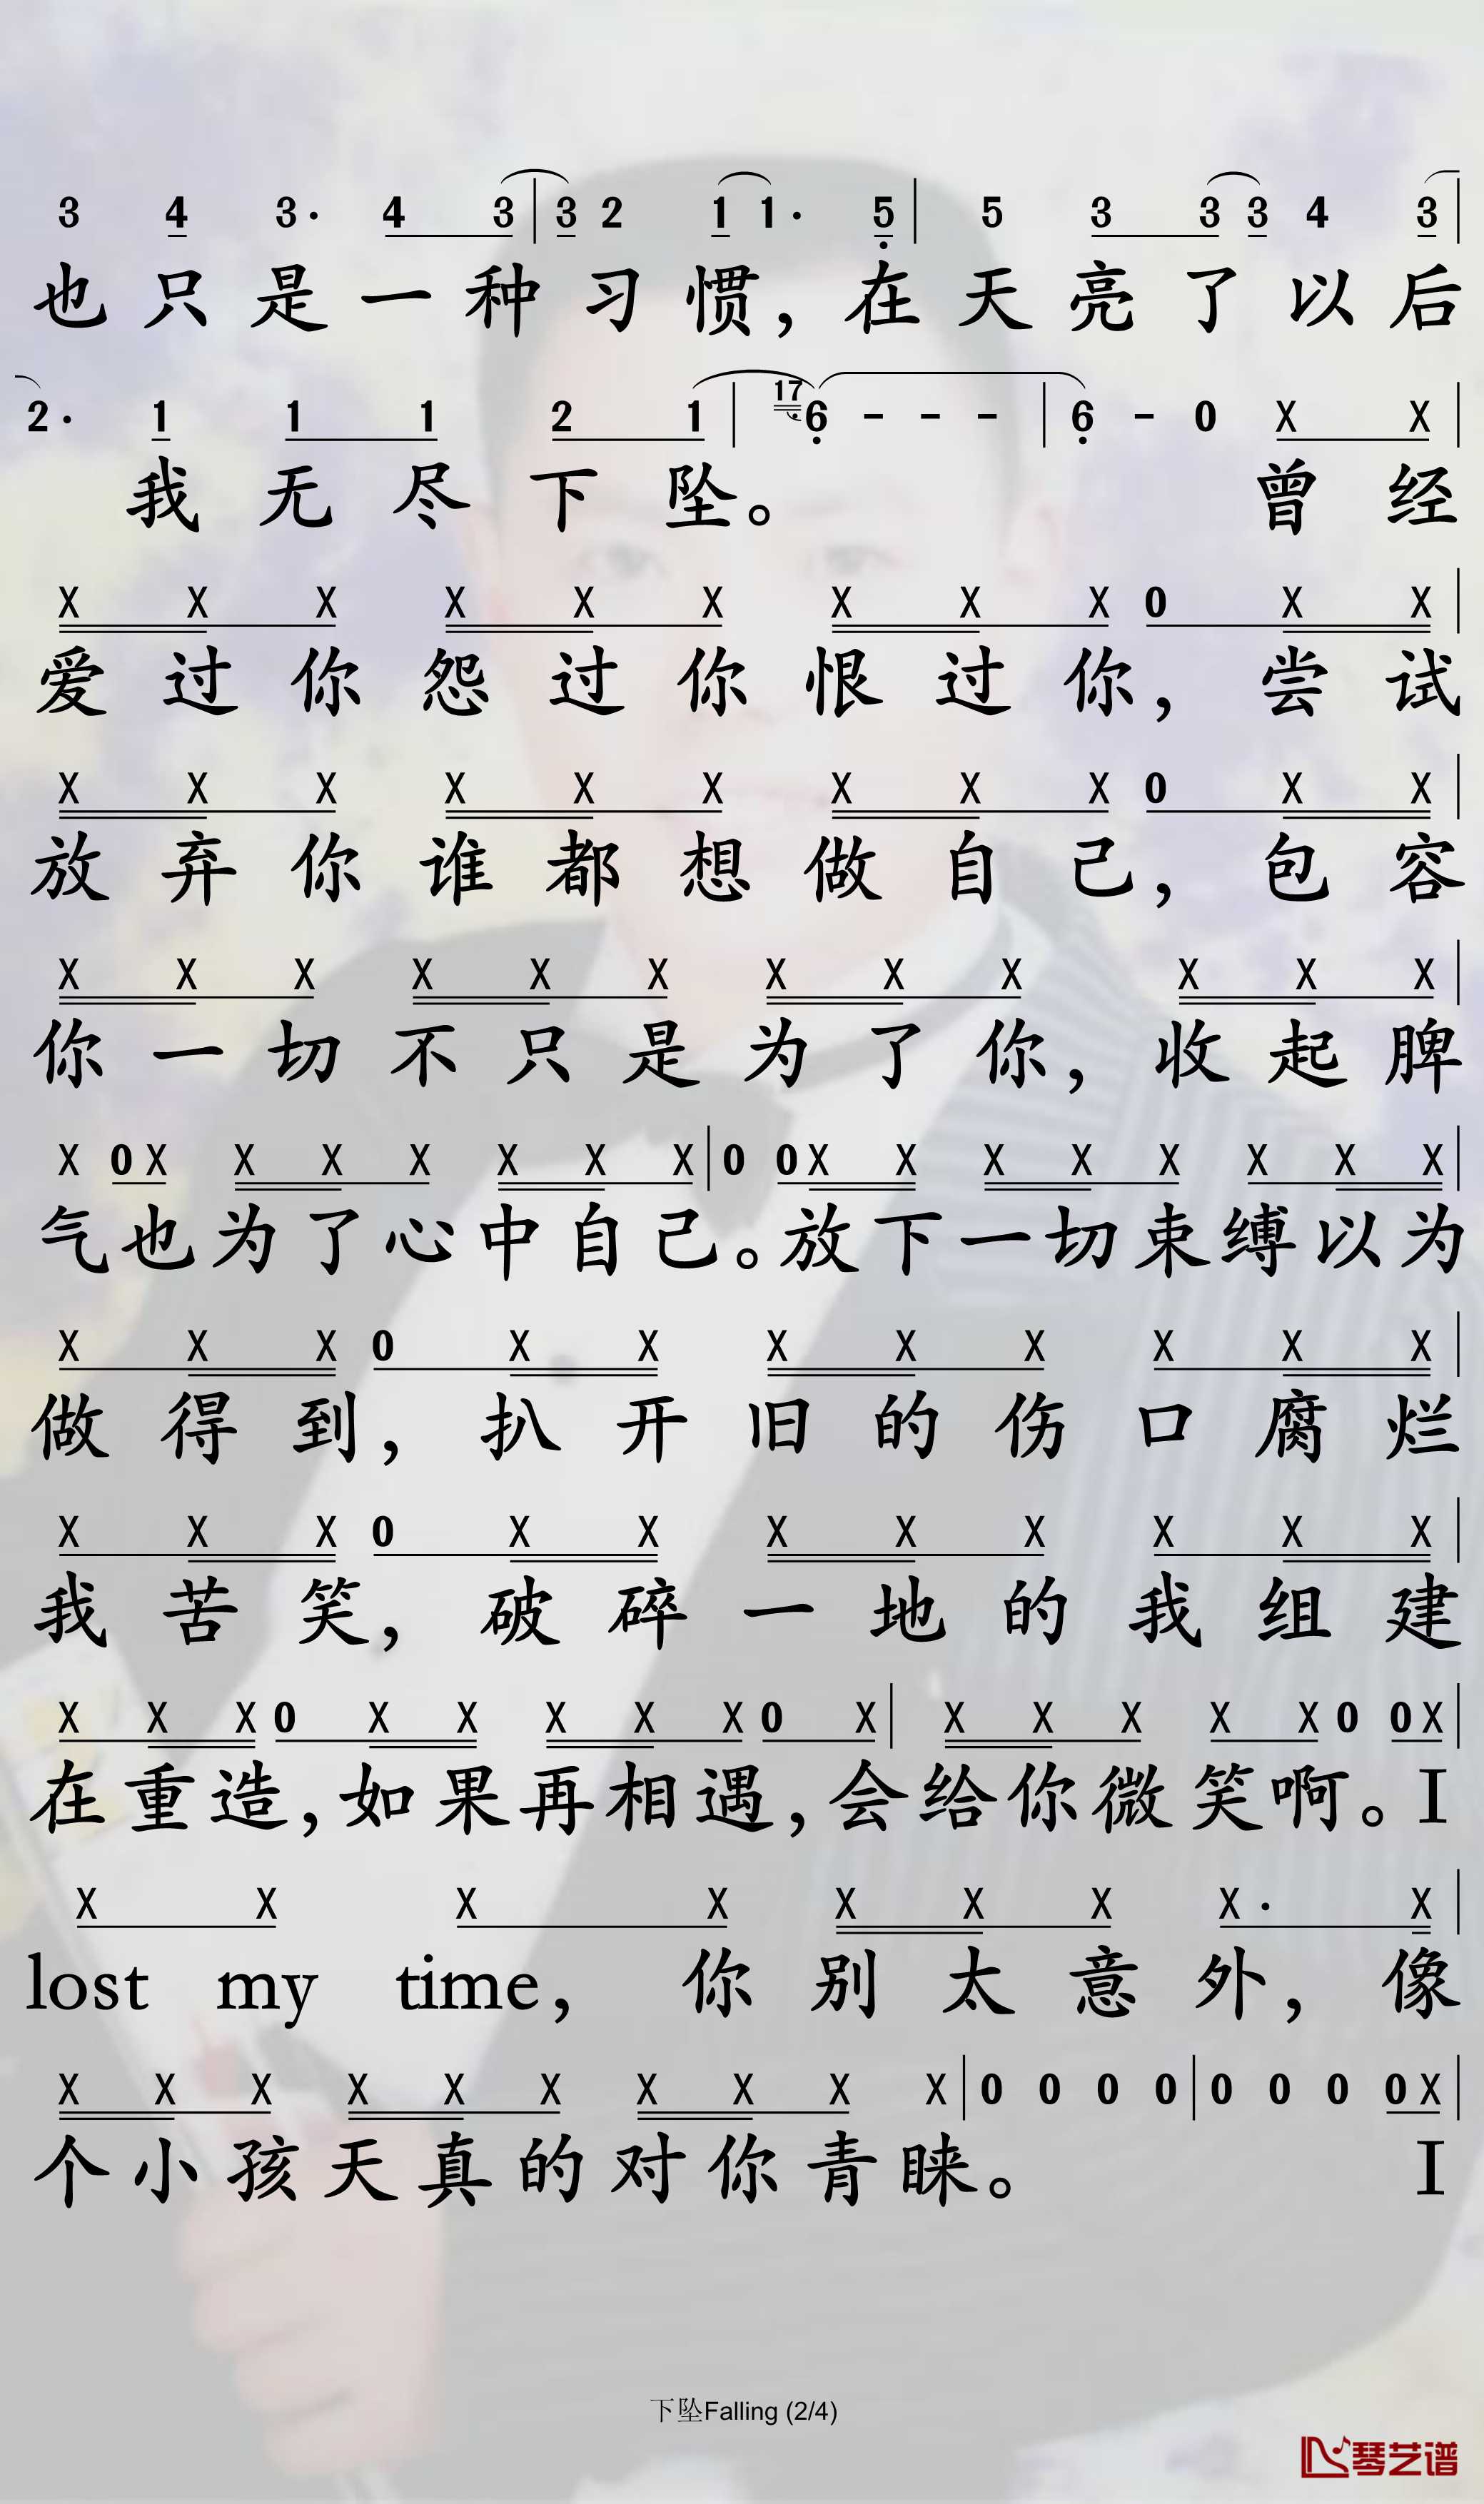 3 4 3· 4 3 | 3 2 1 1· 5 | 5 3 3 3 4 3 |
也只是一种习惯，在天亮了以后
2· 1 1 1 2 1 | 17 6 - - - | 6 - 0 X X |
我无尽下坠。曾经
X X X X X X X X X 0 X X |
爱过你怨过你恨过你，尝试
X X X X X X X X X 0 X X |
放弃你谁都想做自己，包容
X X X X X X X X X X X X |
你一切不只是为了你，收起脾
X 0 X X X X X X X | 0 0 X X X X X X X X |
气也为了心中自己。放下一切束缚以为
X X X 0 X X X X X X X X |
做得到，扒开旧的伤口腐烂
X X X 0 X X X X X X X X |
我苦笑，破碎一地的我组建
X X X 0 X X X X X 0 X | X X X X X 0 0 X |
在重造，如果再相遇，会给你微笑啊。I
X X X X X X X X· X |
lost my time，你别太意外，像
X X X X X X X X X X | 0 0 0 0 | 0 0 0 0 X |
个小孩天真的对你青睐。I
下坠Falling (2/4)
琴艺谱